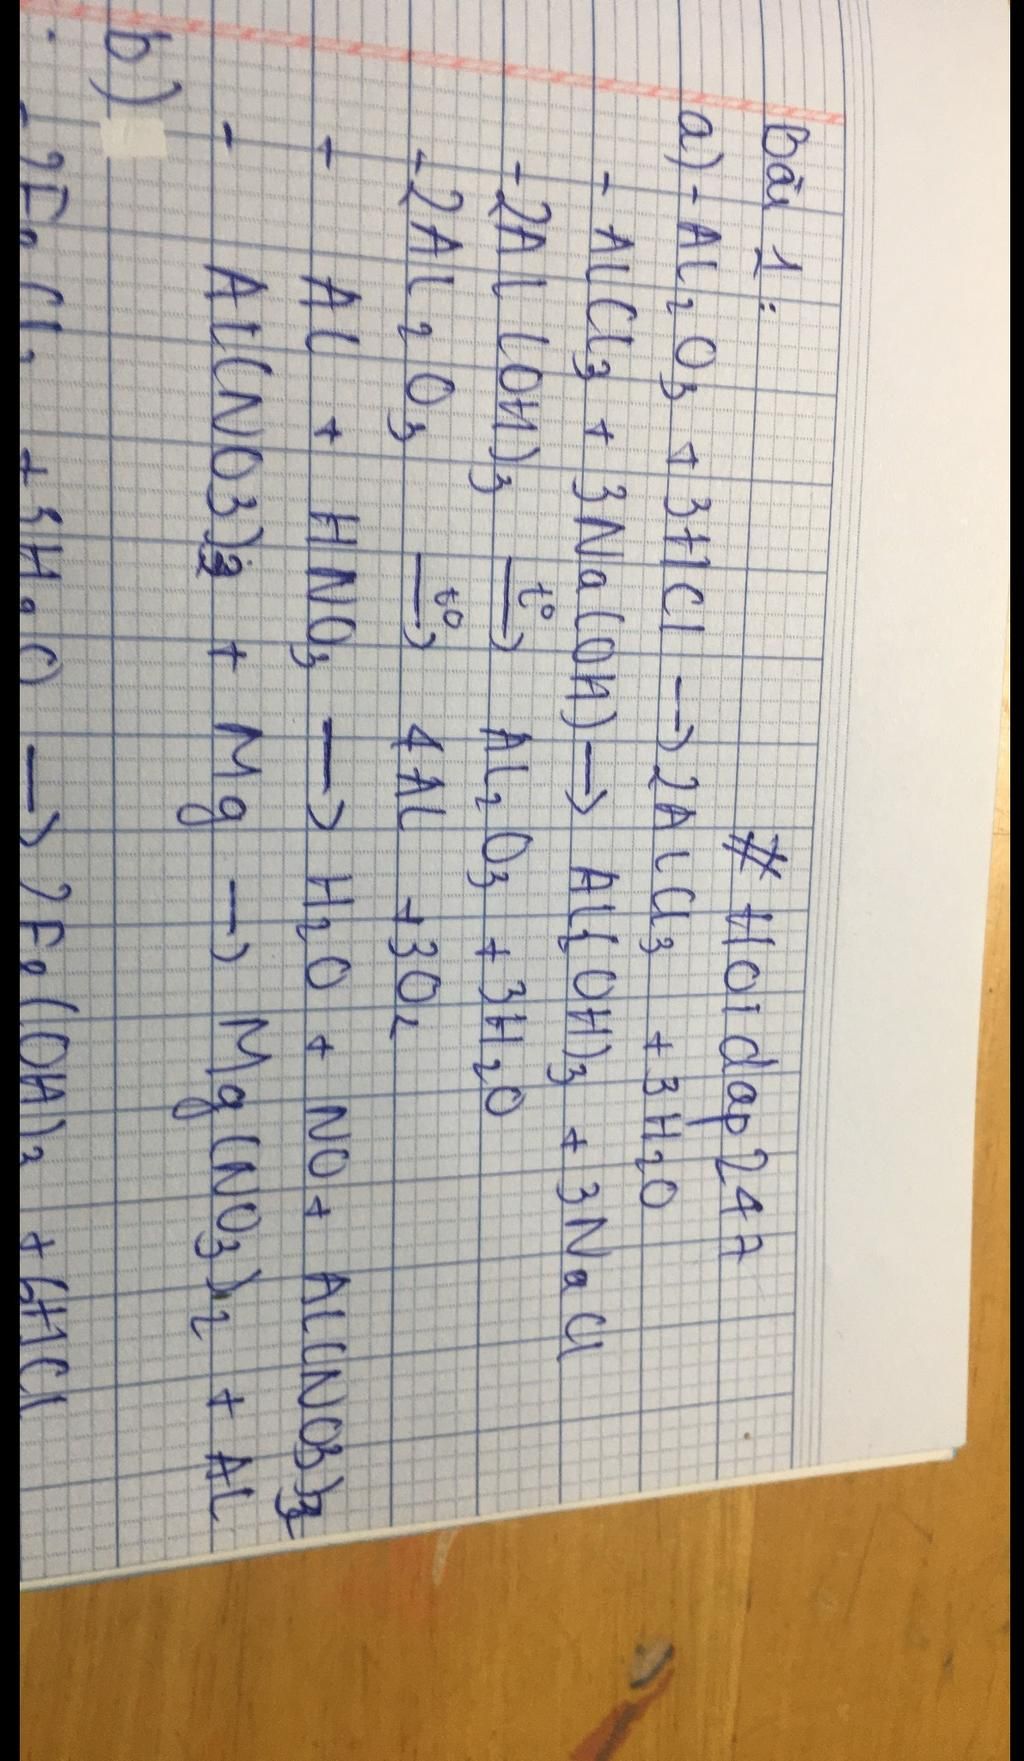 Bài 1:
# Hoidap247
a) - Al2O3 + 3HCl → 2AlCl3 + 3H2O
- AlCl3 + 3Na(OH) → Al(OH)3 + 3NaCl
- 2Al(OH)3 t° → Al2O3 + 3H2O
- 2Al2O3 t° → 4Al + 3O2
- Al + HNO3 → H2O + NO + Al(NO3)3
- Al(NO3)3 + Mg → Mg(NO3)2 + Al
b)
- 2FeCl3 + 3H2O → 2Fe(OH)2 + 6HCl